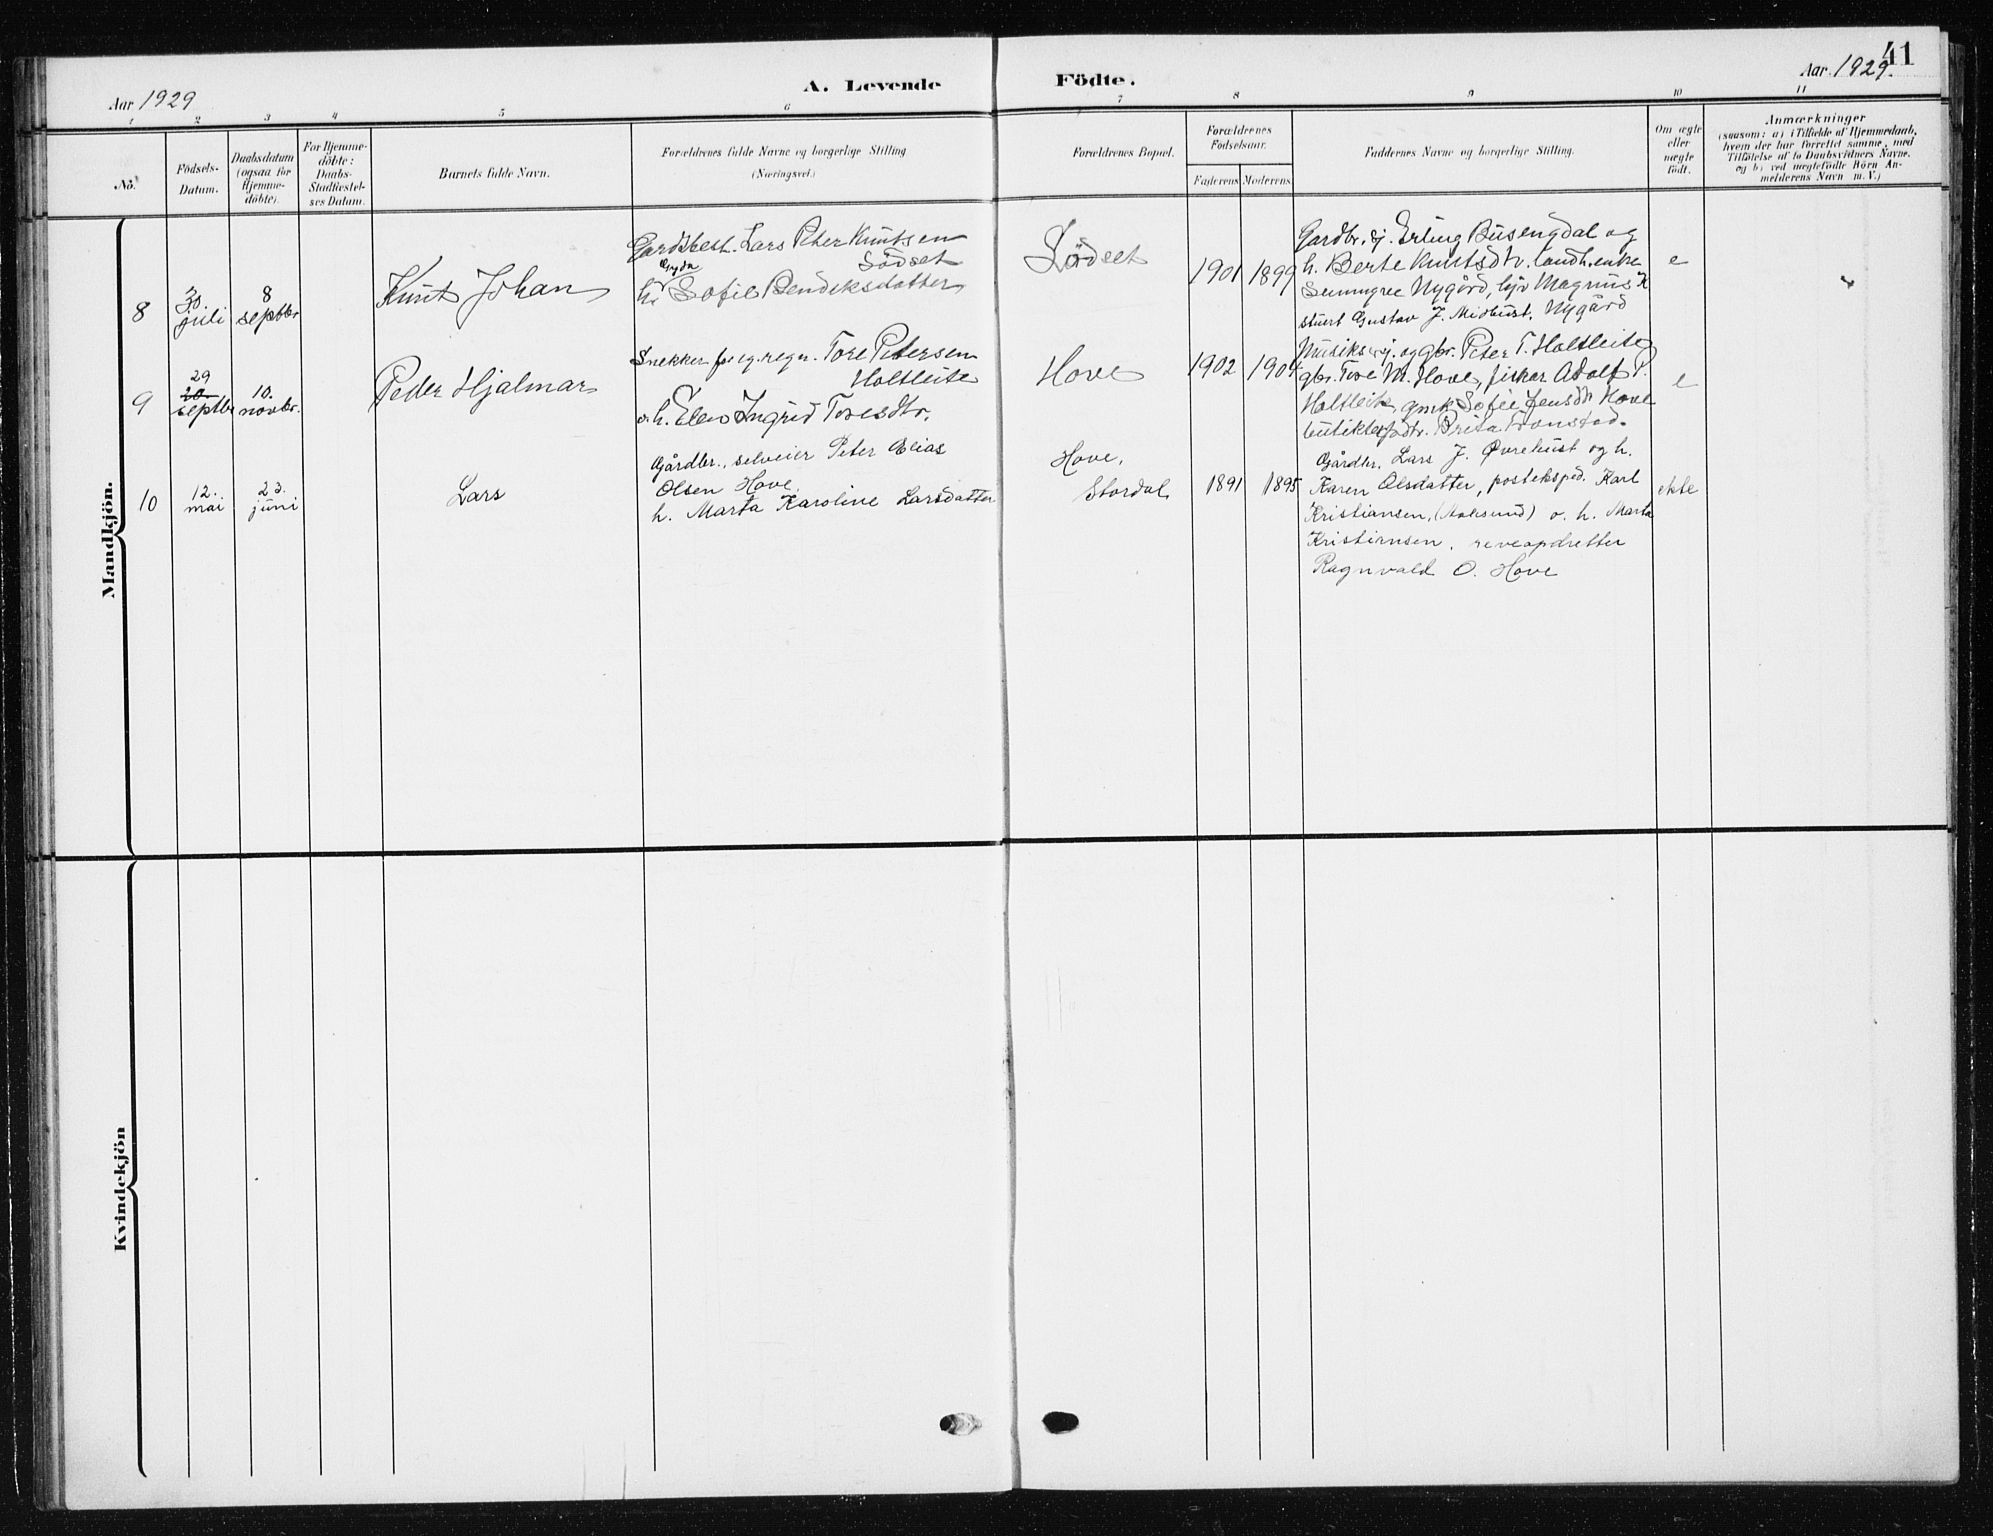 41
Aar 1929
A. Levende Födte.
Aar 1929.
1 2 3 4 5 6 7 8 9 10 11
No.
Födsels-
Datum.
Daabsdatum
(ogsaa for
Hjemme-
döbte).
For Hjemme-
döbte:
Daabs-
Stadfæstel-
ses Datum.
Barnets fulde Navn.
Forældrenes fulde Navne og borgerlige Stilling
(Næringsvei.)
Forældrenes Bopæl.
Forældrenes
Födselsaar.
Faderens Moderens
Faddernes Navne og borgerlige Stilling.
Om ægte
eller
uægte
födt.
Anmærkninger
(saasom: a) i Tilfælde af Hjemmedaab,
hvem der har forrettet samme, med
Tilföielse af to Daabsvidners Navne.
og b) ved uægtefödte Börn An-
melderens Navn m. V.)
Mandkjön.
8
30.
juli
8
septbr
Knut Johan
Gardbest. Lars Peter Knutsen
Lödset
Gyda
h. Sofie Bendeksdatter
Lödset
1901 1899
Gardbr. sj. Erling Busengdal og
h. Berte Knutsdtr. landh. enke
Nygård, Magnus K
Gustav J. Midhust, Nygård
e
9
29
20.
septbr
10.
novbr.
Peder Hjalmar
Snekker for eg. regn. Tore Petersen
Holtleite
o. h. Elen Ingrid Toresdtr.
Hove
1902 1904
gbr. Peter T. Holtleite
gbr. Tore M. Hove, fisker Adolf P.
Holtleite, gmk Sofie Jensdtr Hove
Brita
e
10
12.
mai
23.
juni
Lars
Gårdbr., selveier Peter Elias
Olsen Hove.
h. Marta Karoline Larsdatter
Hove,
Stordal
1891 1895
Gårdbr. Lars J. Øvrehust og h.
Karen Olsdatter, posteksped. Karl
Kristiansen, (Aalesund) o. h. Marta
Kristiansen, reveopdretter
Ragnvald O. Hove
ekte
Kvindekjön